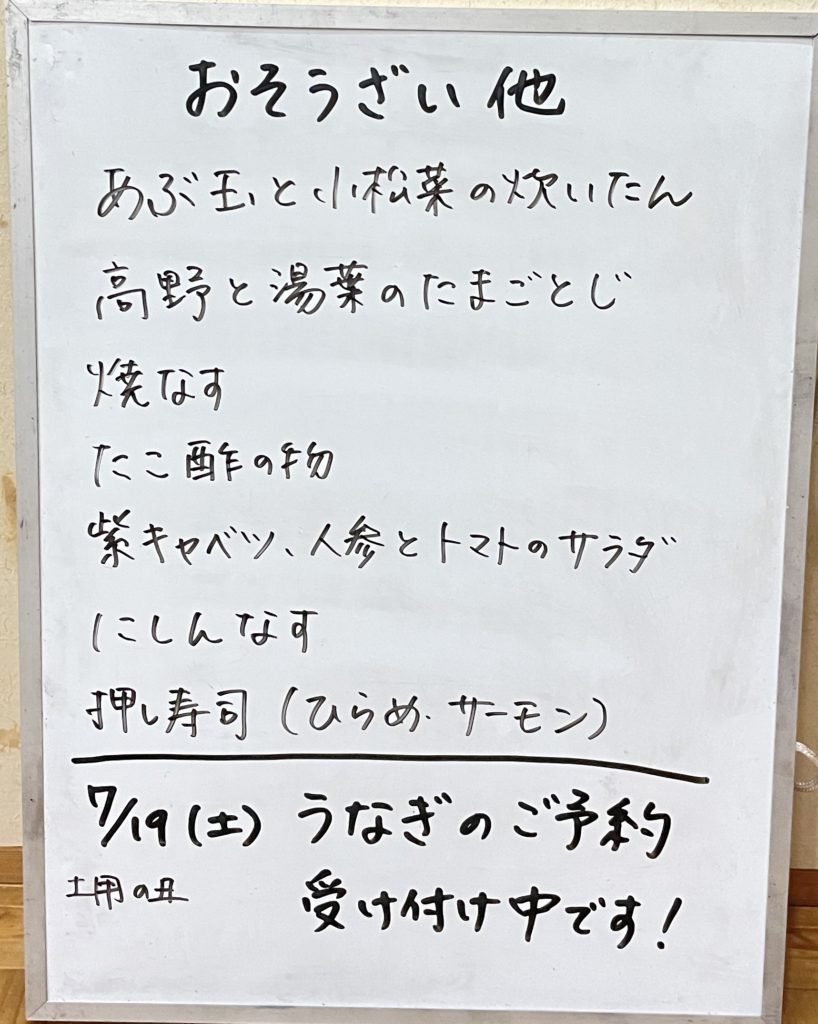 おそうざい 他
あぶ玉と小松菜の炊いたん
高野と湯葉のたまごとじ
焼なす
たこ酢の物
紫キャベツ、人参とトマトのサラダ
にしんなす
押し寿司(ひらめ・サーモン)
7/19(土) うなぎのご予約
土用の丑 受け付け中です!